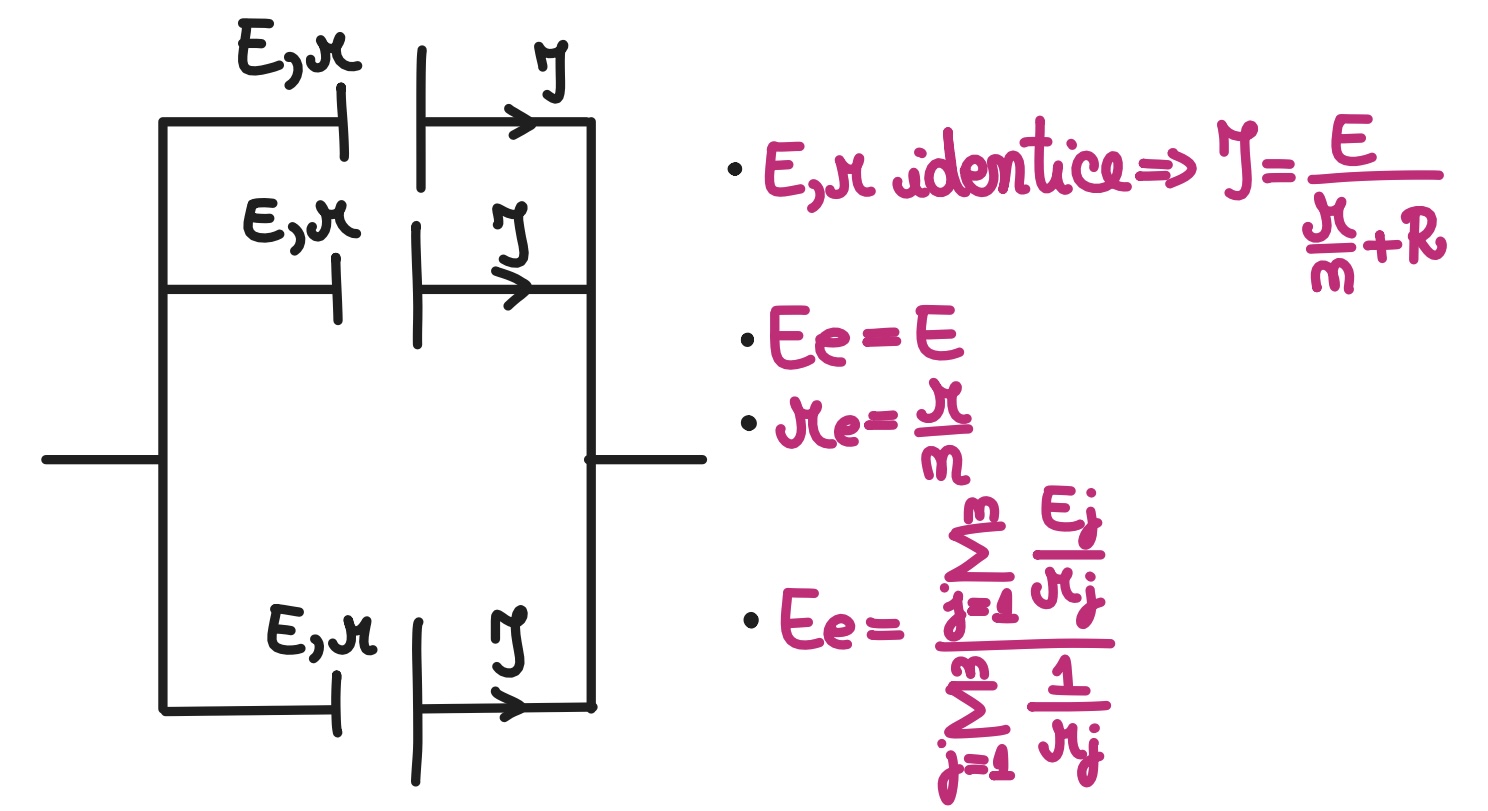 E,r I
E,r I
E,r I
• E,r identice => I = E/(r/n + R)
• Ee = E
• re = r/n
• Ee = (∑_{j=1}^{n} Ej/rj)/(∑_{j=1}^{n} 1/rj)